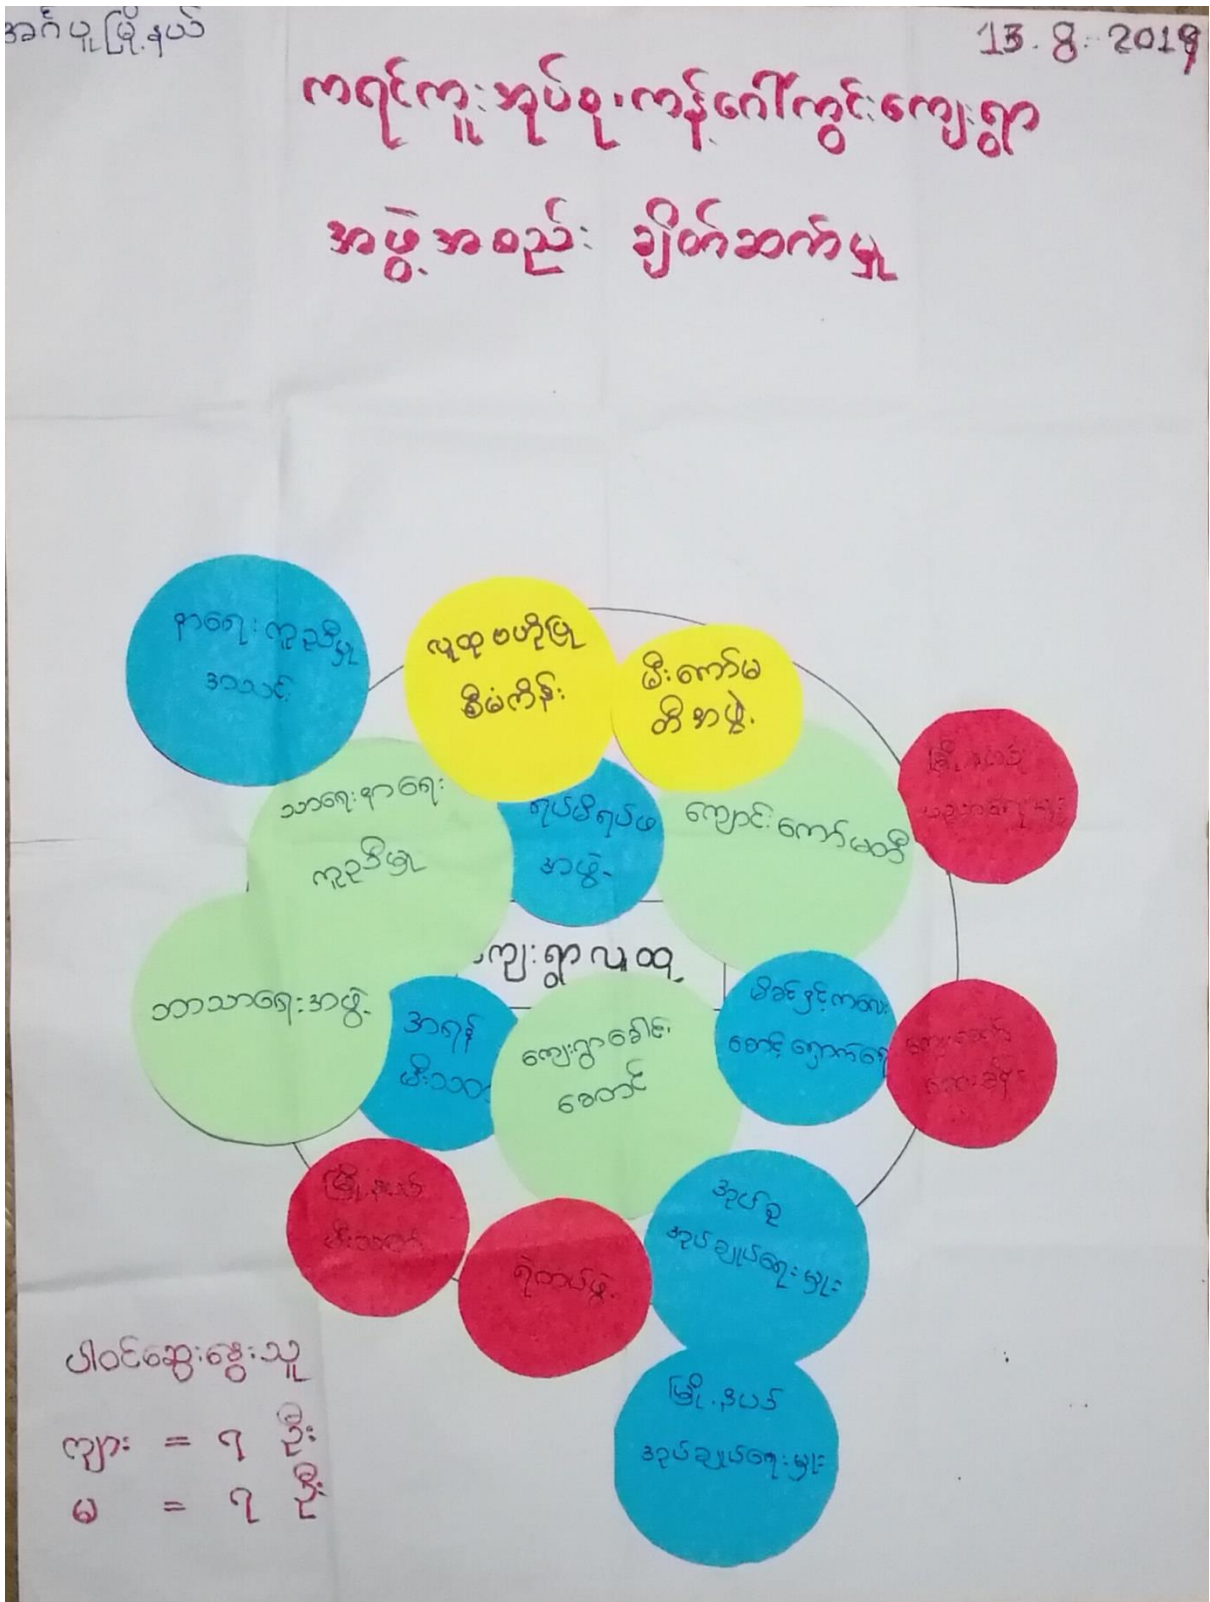 အင်္ဂပူမြို့နယ်
13.8.2019
ကရင်ကူးအုပ်စု၊ကန့်ဂေါ်ကွင်းကျေးရွာ
အဖွဲ့အစည်း ချိတ်ဆက်မှု
နာရေးကူညီမှု
အသင်း
လူထုဗဟိုပြု
စီမံကိန်း
မီးကော်မ
တီအဖွဲ့
သာရေးနာရေး
ကူညီမှု
ရပ်မိရပ်ဖ
အဖွဲ့
ကျောင်းကော်မတီ
မြို့နယ်
ကျေးရွာလူထု
ဘာသာရေးအဖွဲ့
အရန်
မီးသတ်
ကျေးရွာခေါင်း
ဆောင်
မိခင်နှင့်ကလေး
စောင့်ရှောက်ရေး
မြို့နယ်
မီးသတ်
ရဲတပ်ဖွဲ့
အုပ်စု
အုပ်ချုပ်ရေးမှူး
မြို့နယ်
အုပ်ချုပ်ရေးမှူး
ပါဝင်ဆွေးနွေးသူ
ကျား = ၇ ဦး
မ = ၇ ဦး